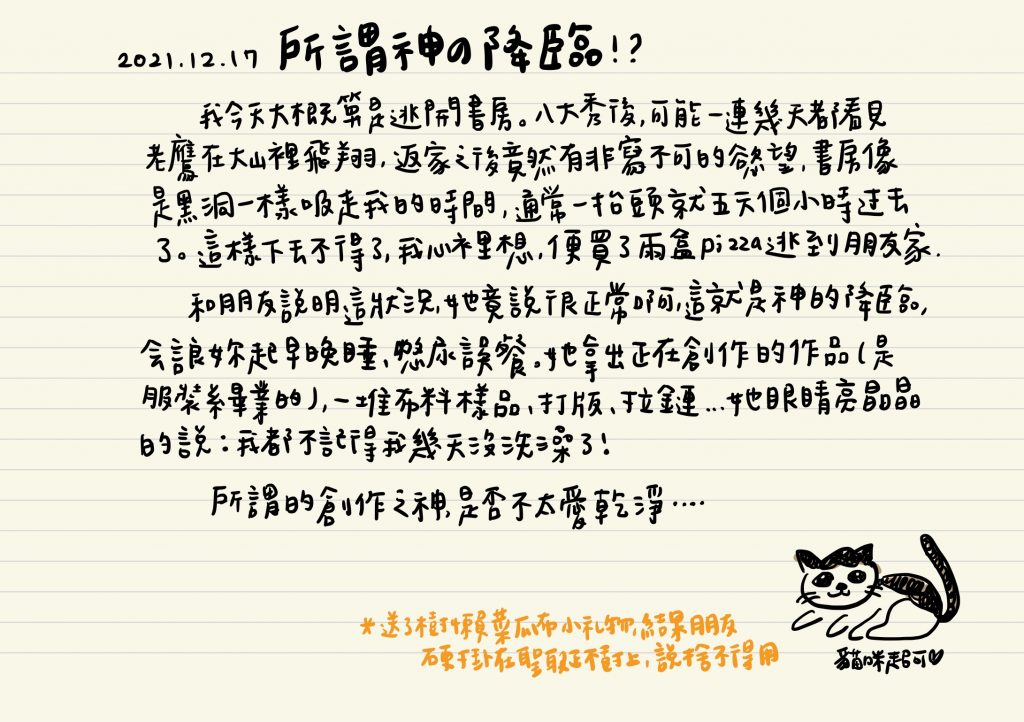 2021.12.17 所謂神の降臨!?
我今天大概算是逃開書房。八大秀後,可能一連幾天都看見
老鷹在大山裡飛翔,返家之後竟然有非寫不可的慾望,書房像
是黑洞一樣吸走我的時間,通常一抬頭就五六個小時過去
了。這樣下去不得了,我心裡想,便買了兩盒pizza逃到朋友家.
和朋友說明這狀況,她竟說很正常啊,這就是神的降臨,
会讓妳起早晚睡、憋尿誤餐。她拿出正在創作的作品(是
服裝系畢業的),一堆布料樣品、打版、拉鏈...她眼睛亮晶晶
的說:我都不記得我幾天沒洗澡了!
所謂的創作之神,是否不太愛乾淨....
*送了樹懶菜瓜布小礼物,結果朋友
硬掛在聖誕樹上,說捨不得用
貓咪起司♡